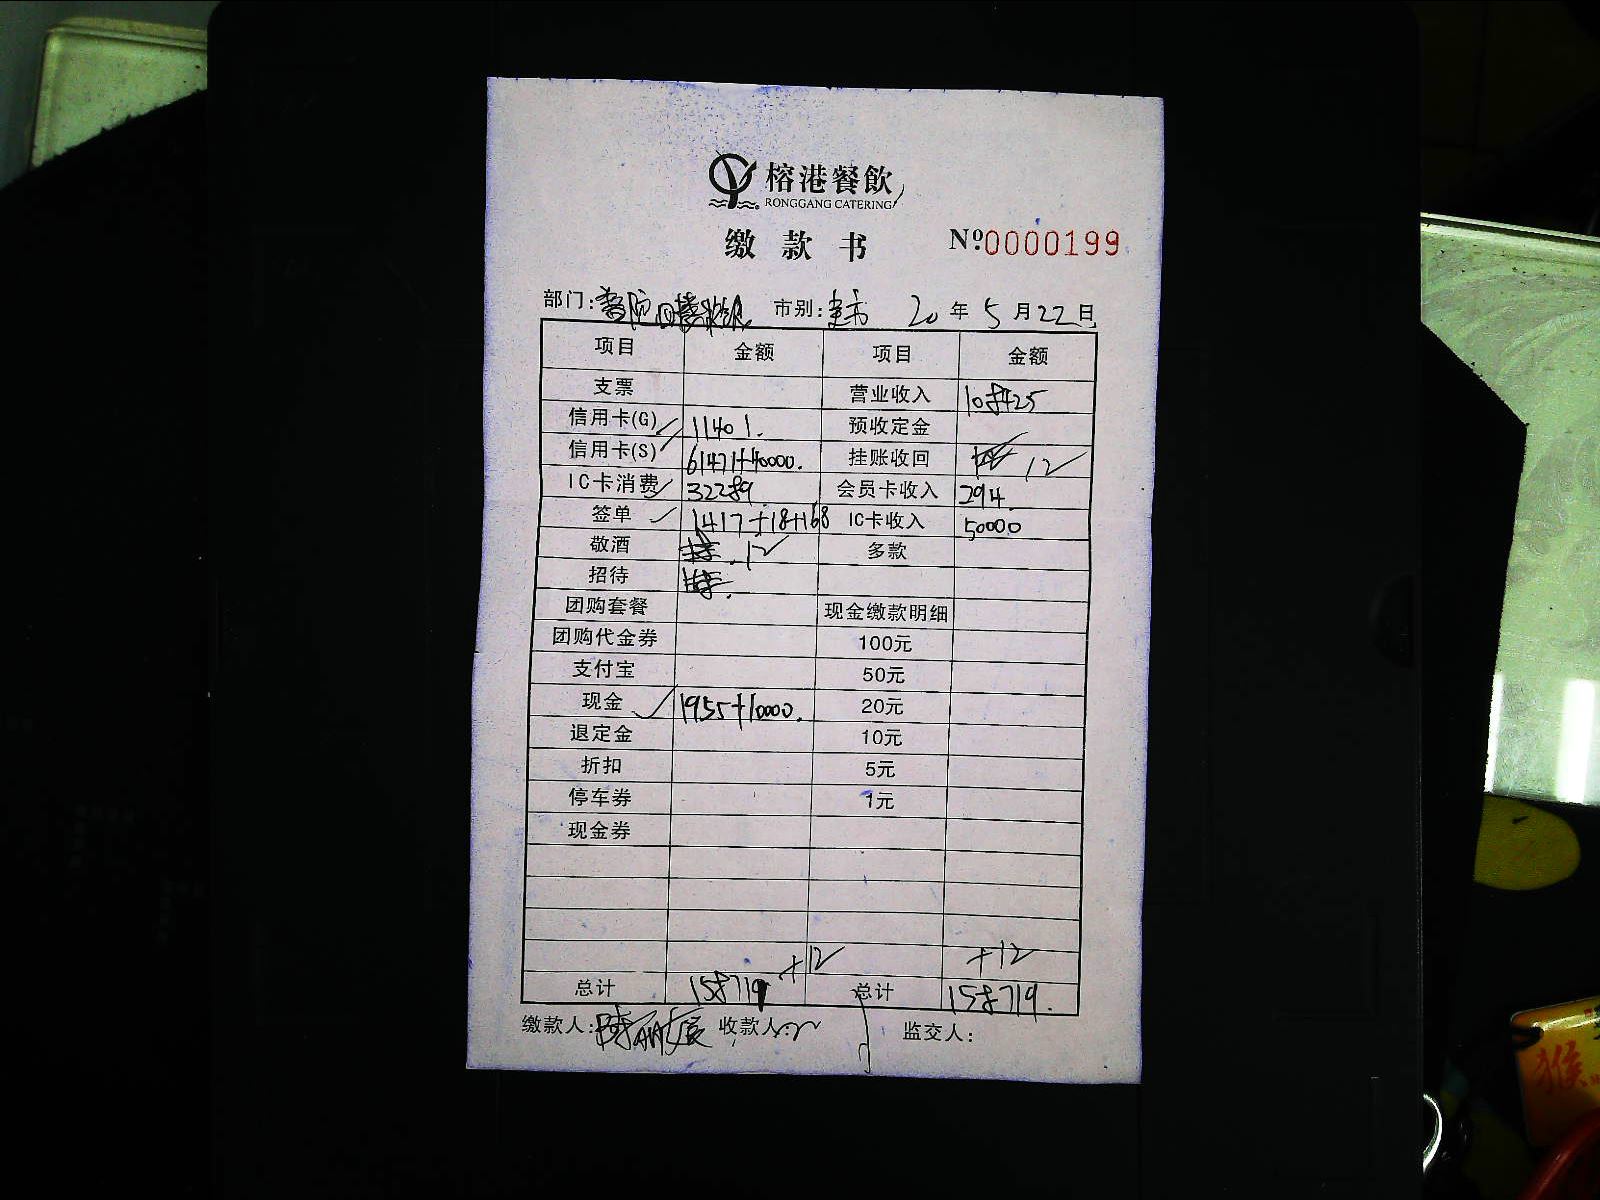 榕港餐飲
RONGGANG CATERING
缴款书 №0000199
部门: 市别: 20年5月22日
项目 金额 项目 金额
支票 营业收入 108425
信用卡(G) 11401. 预收定金
信用卡(S) 61471+40000. 挂账收回 12
IC卡消费 32289 会员卡收入 294.
签单 1417+18+168 IC卡收入 50000
敬酒 12 多款
招待
团购套餐 现金缴款明细
团购代金券 100元
支付宝 50元
现金 1955+10000. 20元
退定金 10元
折扣 5元
停车券 1元
现金券
+12 +12
总计 158719 总计 158719.
缴款人: 收款人: 监交人:
猴